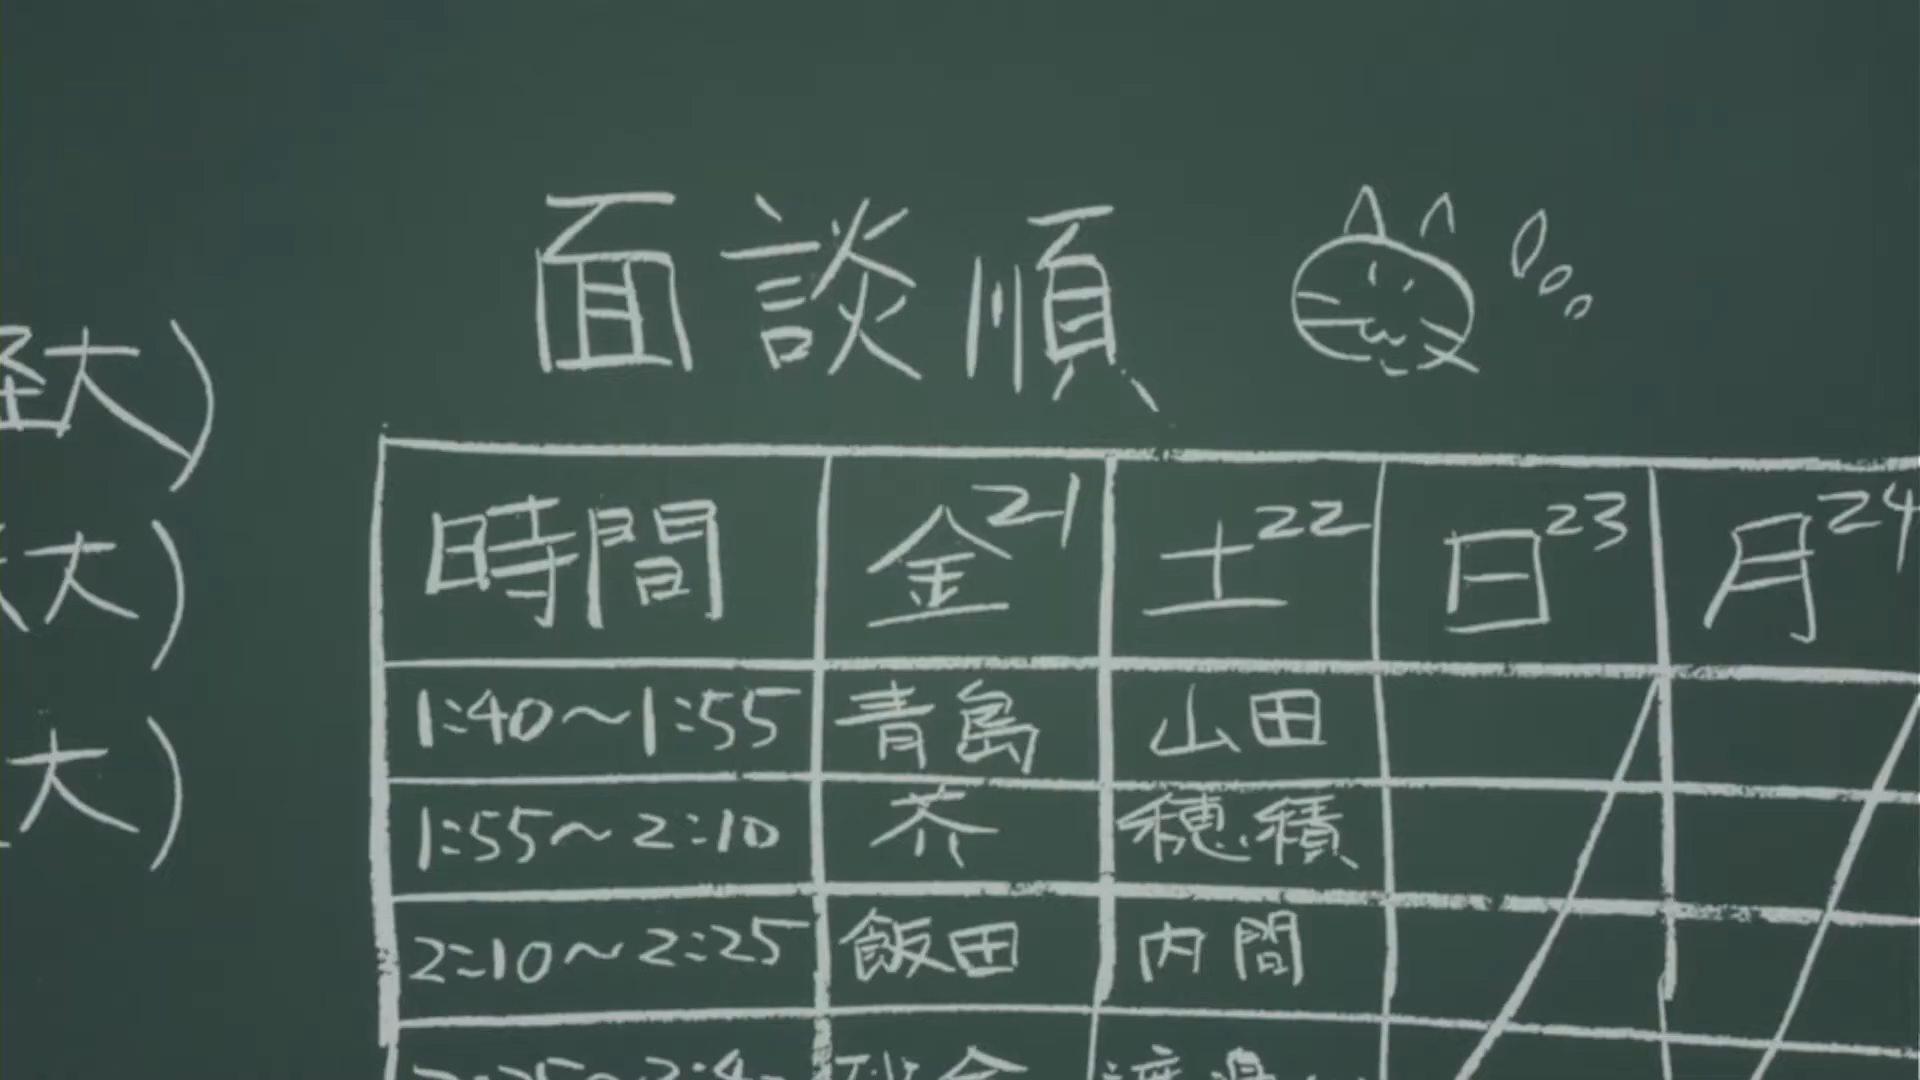 面談順
大)
大)
大)
時間 金21 土22 日23 月24
1:40〜1:55 青島 山田
1:55〜2:10 芥 穂積
2:10〜2:25 飯田 内間